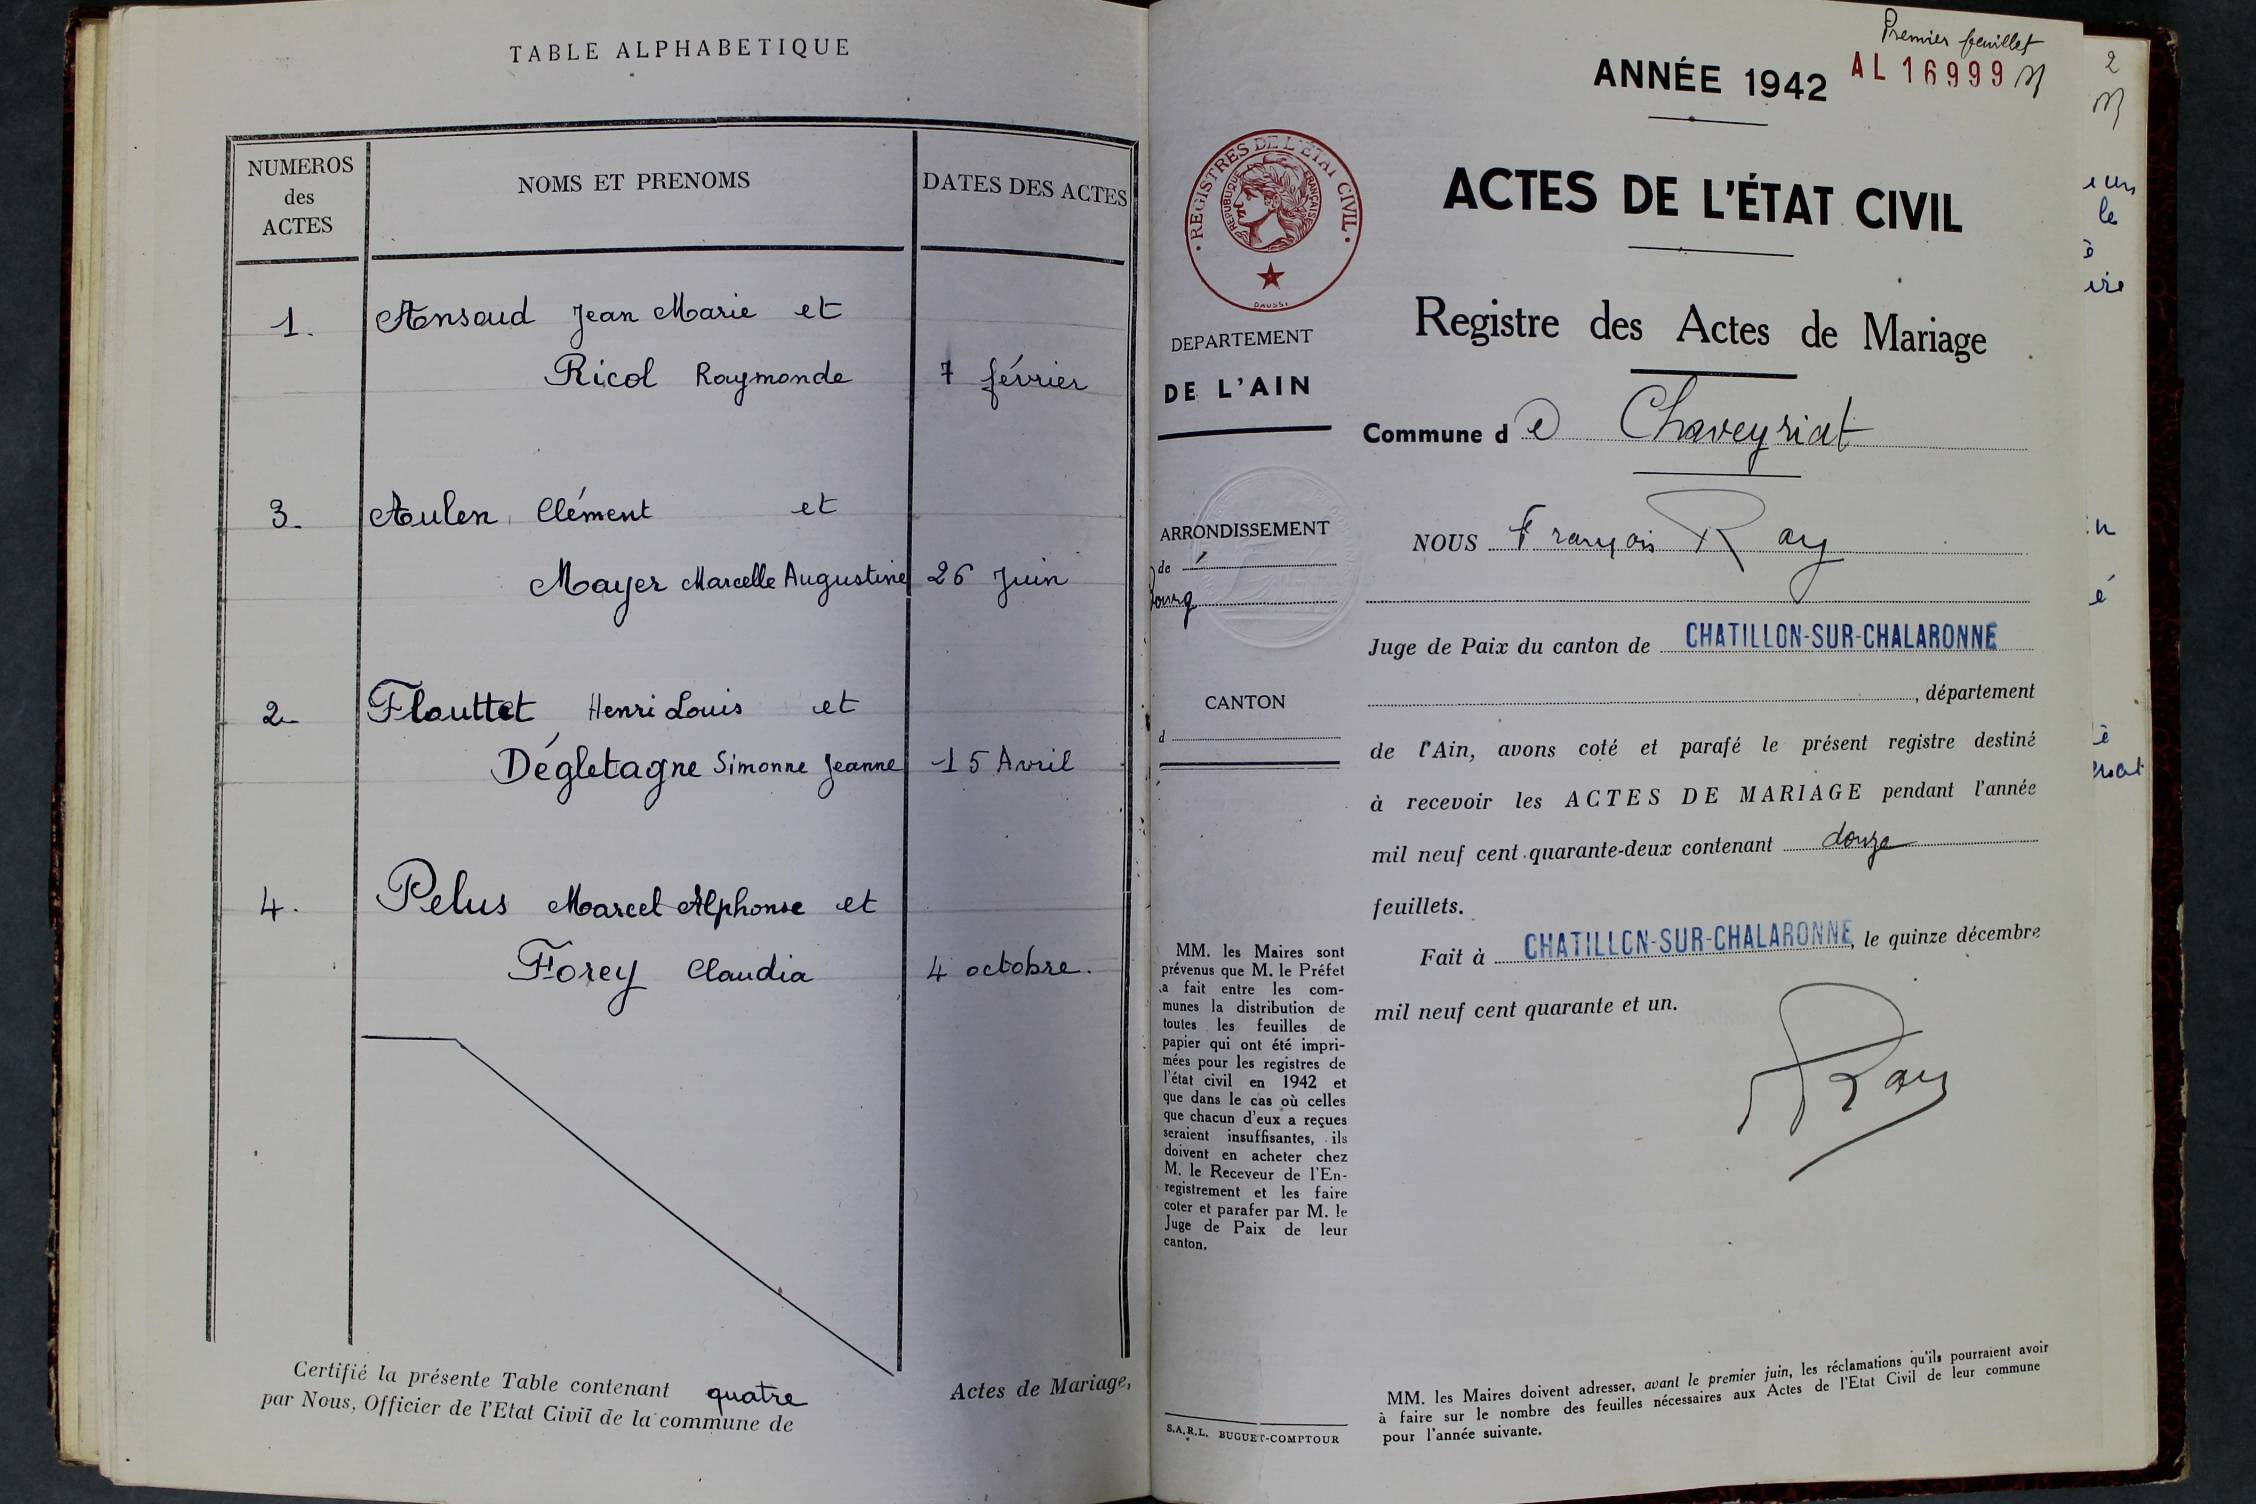 TABLE ALPHABETIQUE
NUMEROS
des
ACTES
NOMS ET PRENOMS
DATES DES ACTES
1. Ansoud Jean Marie et
Ricol Raymonde 7 février
3. Aulen Clément et
Mayer Marcelle Augustine 26 Juin
2 Flouttet Henri Louis et
Dégletagne Simonne Jeanne 15 Avril
4. Pelus Marcel Alphonse et
Forey Claudia 4 octobre.
Certifié la présente Table contenant quatre Actes de Mariage,
par Nous, Officier de l'Etat Civil de la commune de
Premier feuillet
ANNÉE 1942
AL 16999
ACTES DE L'ÉTAT CIVIL
REGISTRES DE L'ÉTAT CIVIL
REPUBLIQUE FRANÇAISE
DAUSSI
Registre des Actes de Mariage
DEPARTEMENT
DE L'AIN
Commune de Chaveyriat
ARRONDISSEMENT
de
Bourg
NOUS François Ray
Juge de Paix du canton de CHATILLON-SUR-CHALARONNE
CANTON
d
, département
de l'Ain, avons coté et parafé le présent registre destiné
à recevoir les ACTES DE MARIAGE pendant l'année
mil neuf cent quarante-deux contenant douze
feuillets.
Fait à CHATILLON-SUR-CHALARONNE, le quinze décembre
mil neuf cent quarante et un.
Ray
MM. les Maires sont
prévenus que M. le Préfet
a fait entre les com-
munes la distribution de
toutes les feuilles de
papier qui ont été impri-
mées pour les registres de
l'état civil en 1942 et
que dans le cas où celles
que chacun d'eux a reçues
seraient insuffisantes, ils
doivent en acheter chez
M. le Receveur de l'En-
registrement et les faire
coter et parafer par M. le
Juge de Paix de leur
canton.
S.A.R.L. BUGUET-COMPTOUR
MM. les Maires doivent adresser, avant le premier juin, les réclamations qu'ils pourraient avoir
à faire sur le nombre des feuilles nécessaires aux Actes de l'Etat Civil de leur commune
pour l'année suivante.
2
le